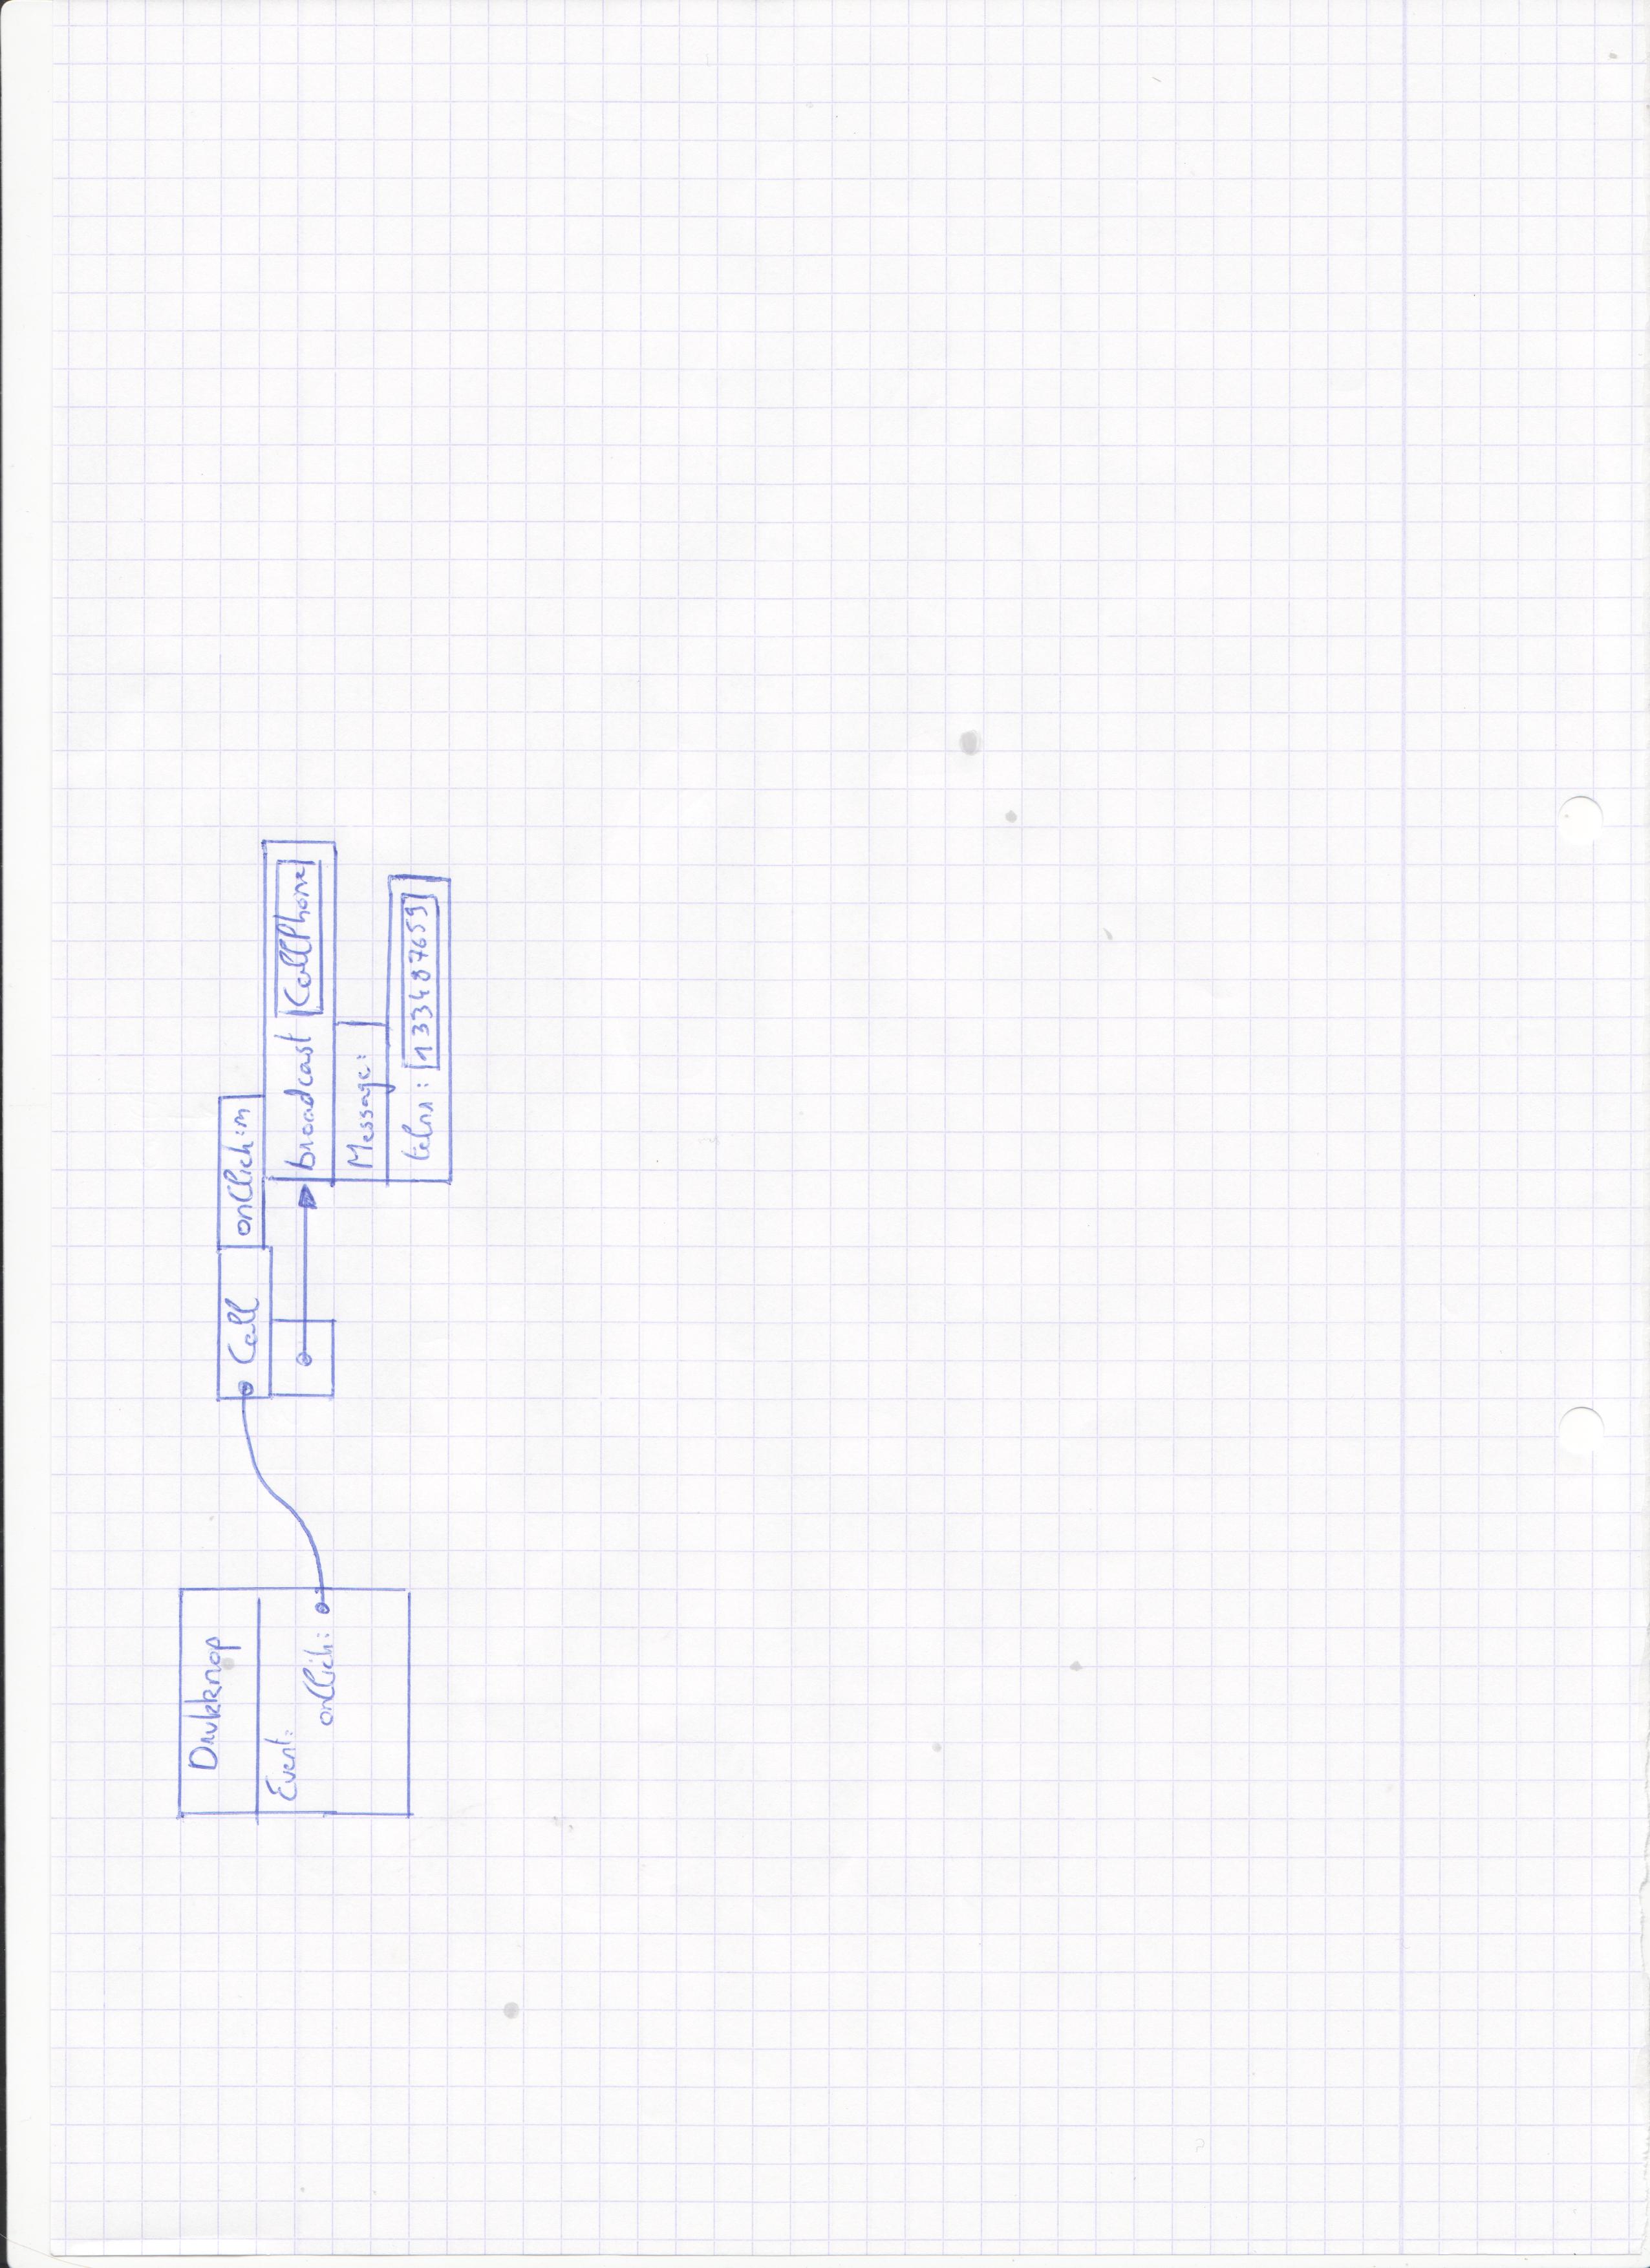 Drukknop
Event:
onClick:
Call
onClick:m
broadcast CallPhone
Message:
telnr: 133487659